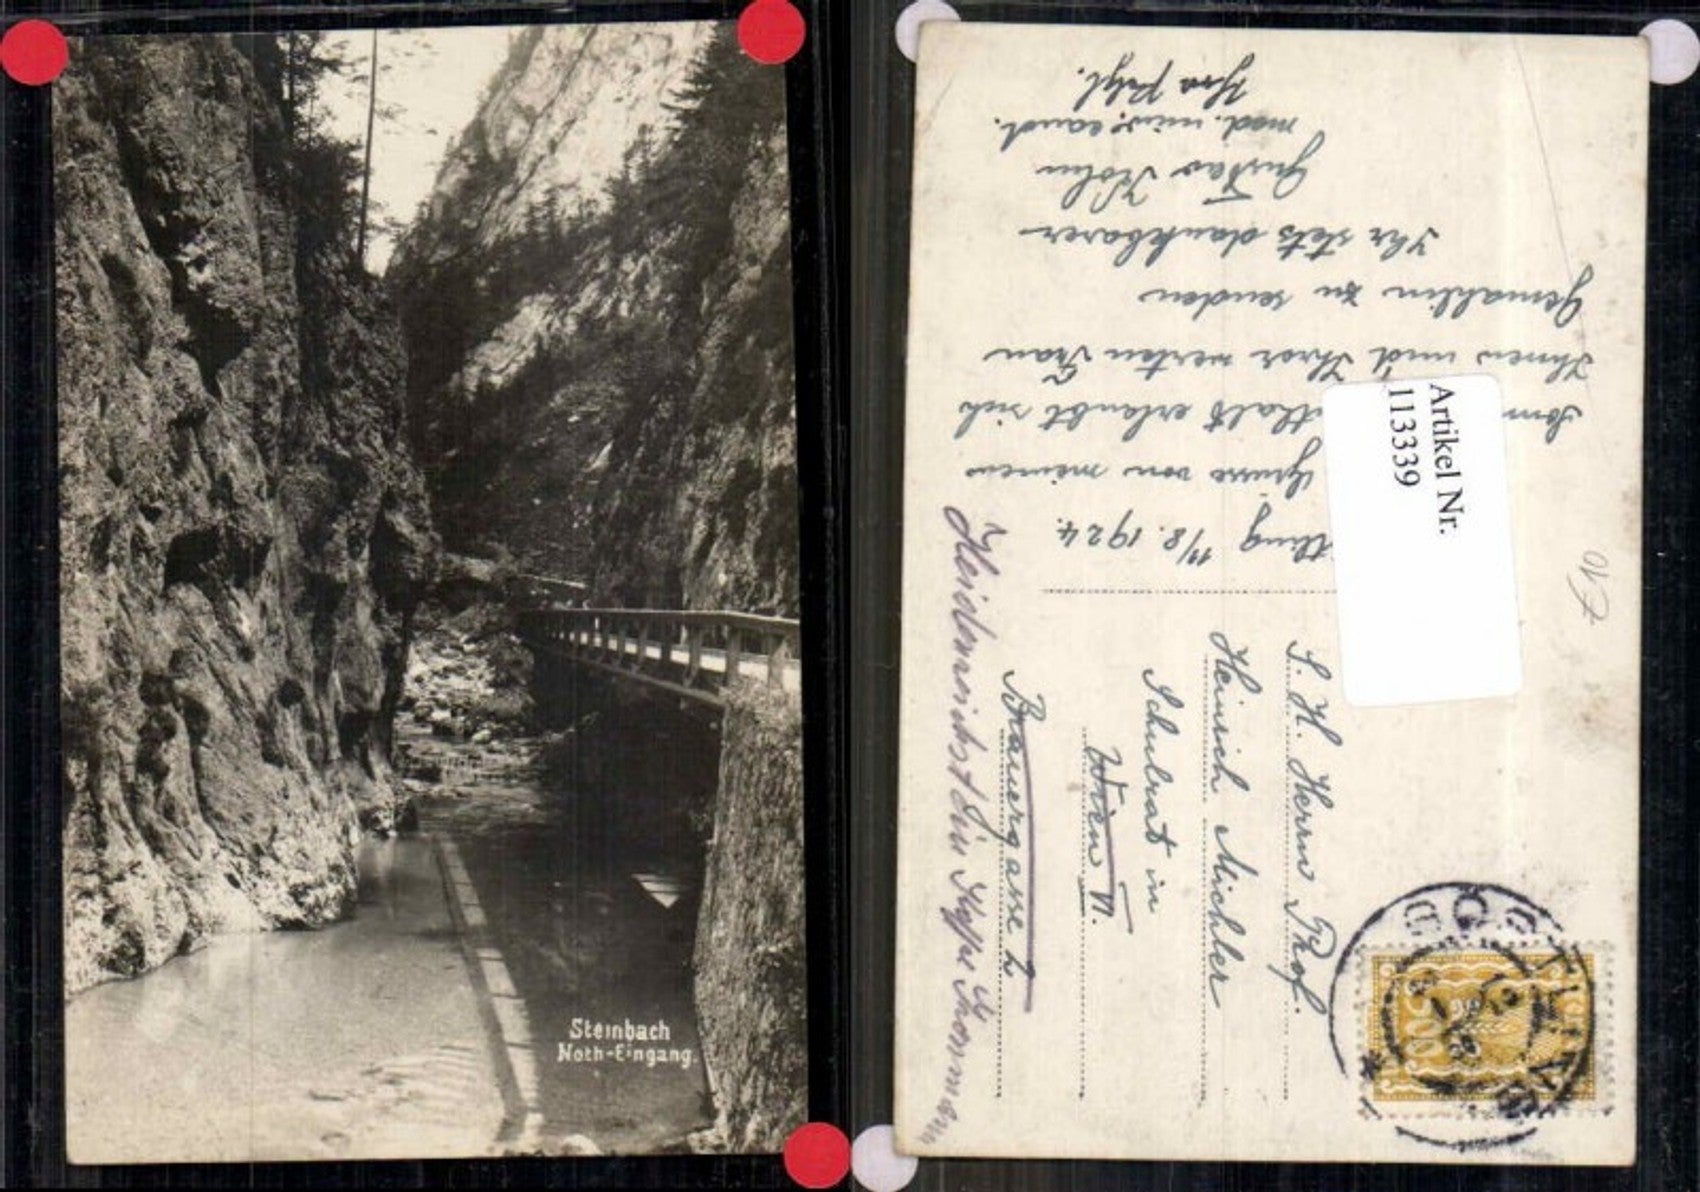 Steinbach
Noth-Eingang.
Artikel Nr.
113339
tling 11/8. 1924.
Grüsse von meinem
Som thalt erlaubt sich
Ihnen und Ihrer werten Frau
Gemahlin zu senden
Ihr stets dankbarer
Gustav
med. univ. cand.
S. H. Herrn Prof.
Heinrich Michler
Schulrat in
Wien VI.
Brauergasse 2
500